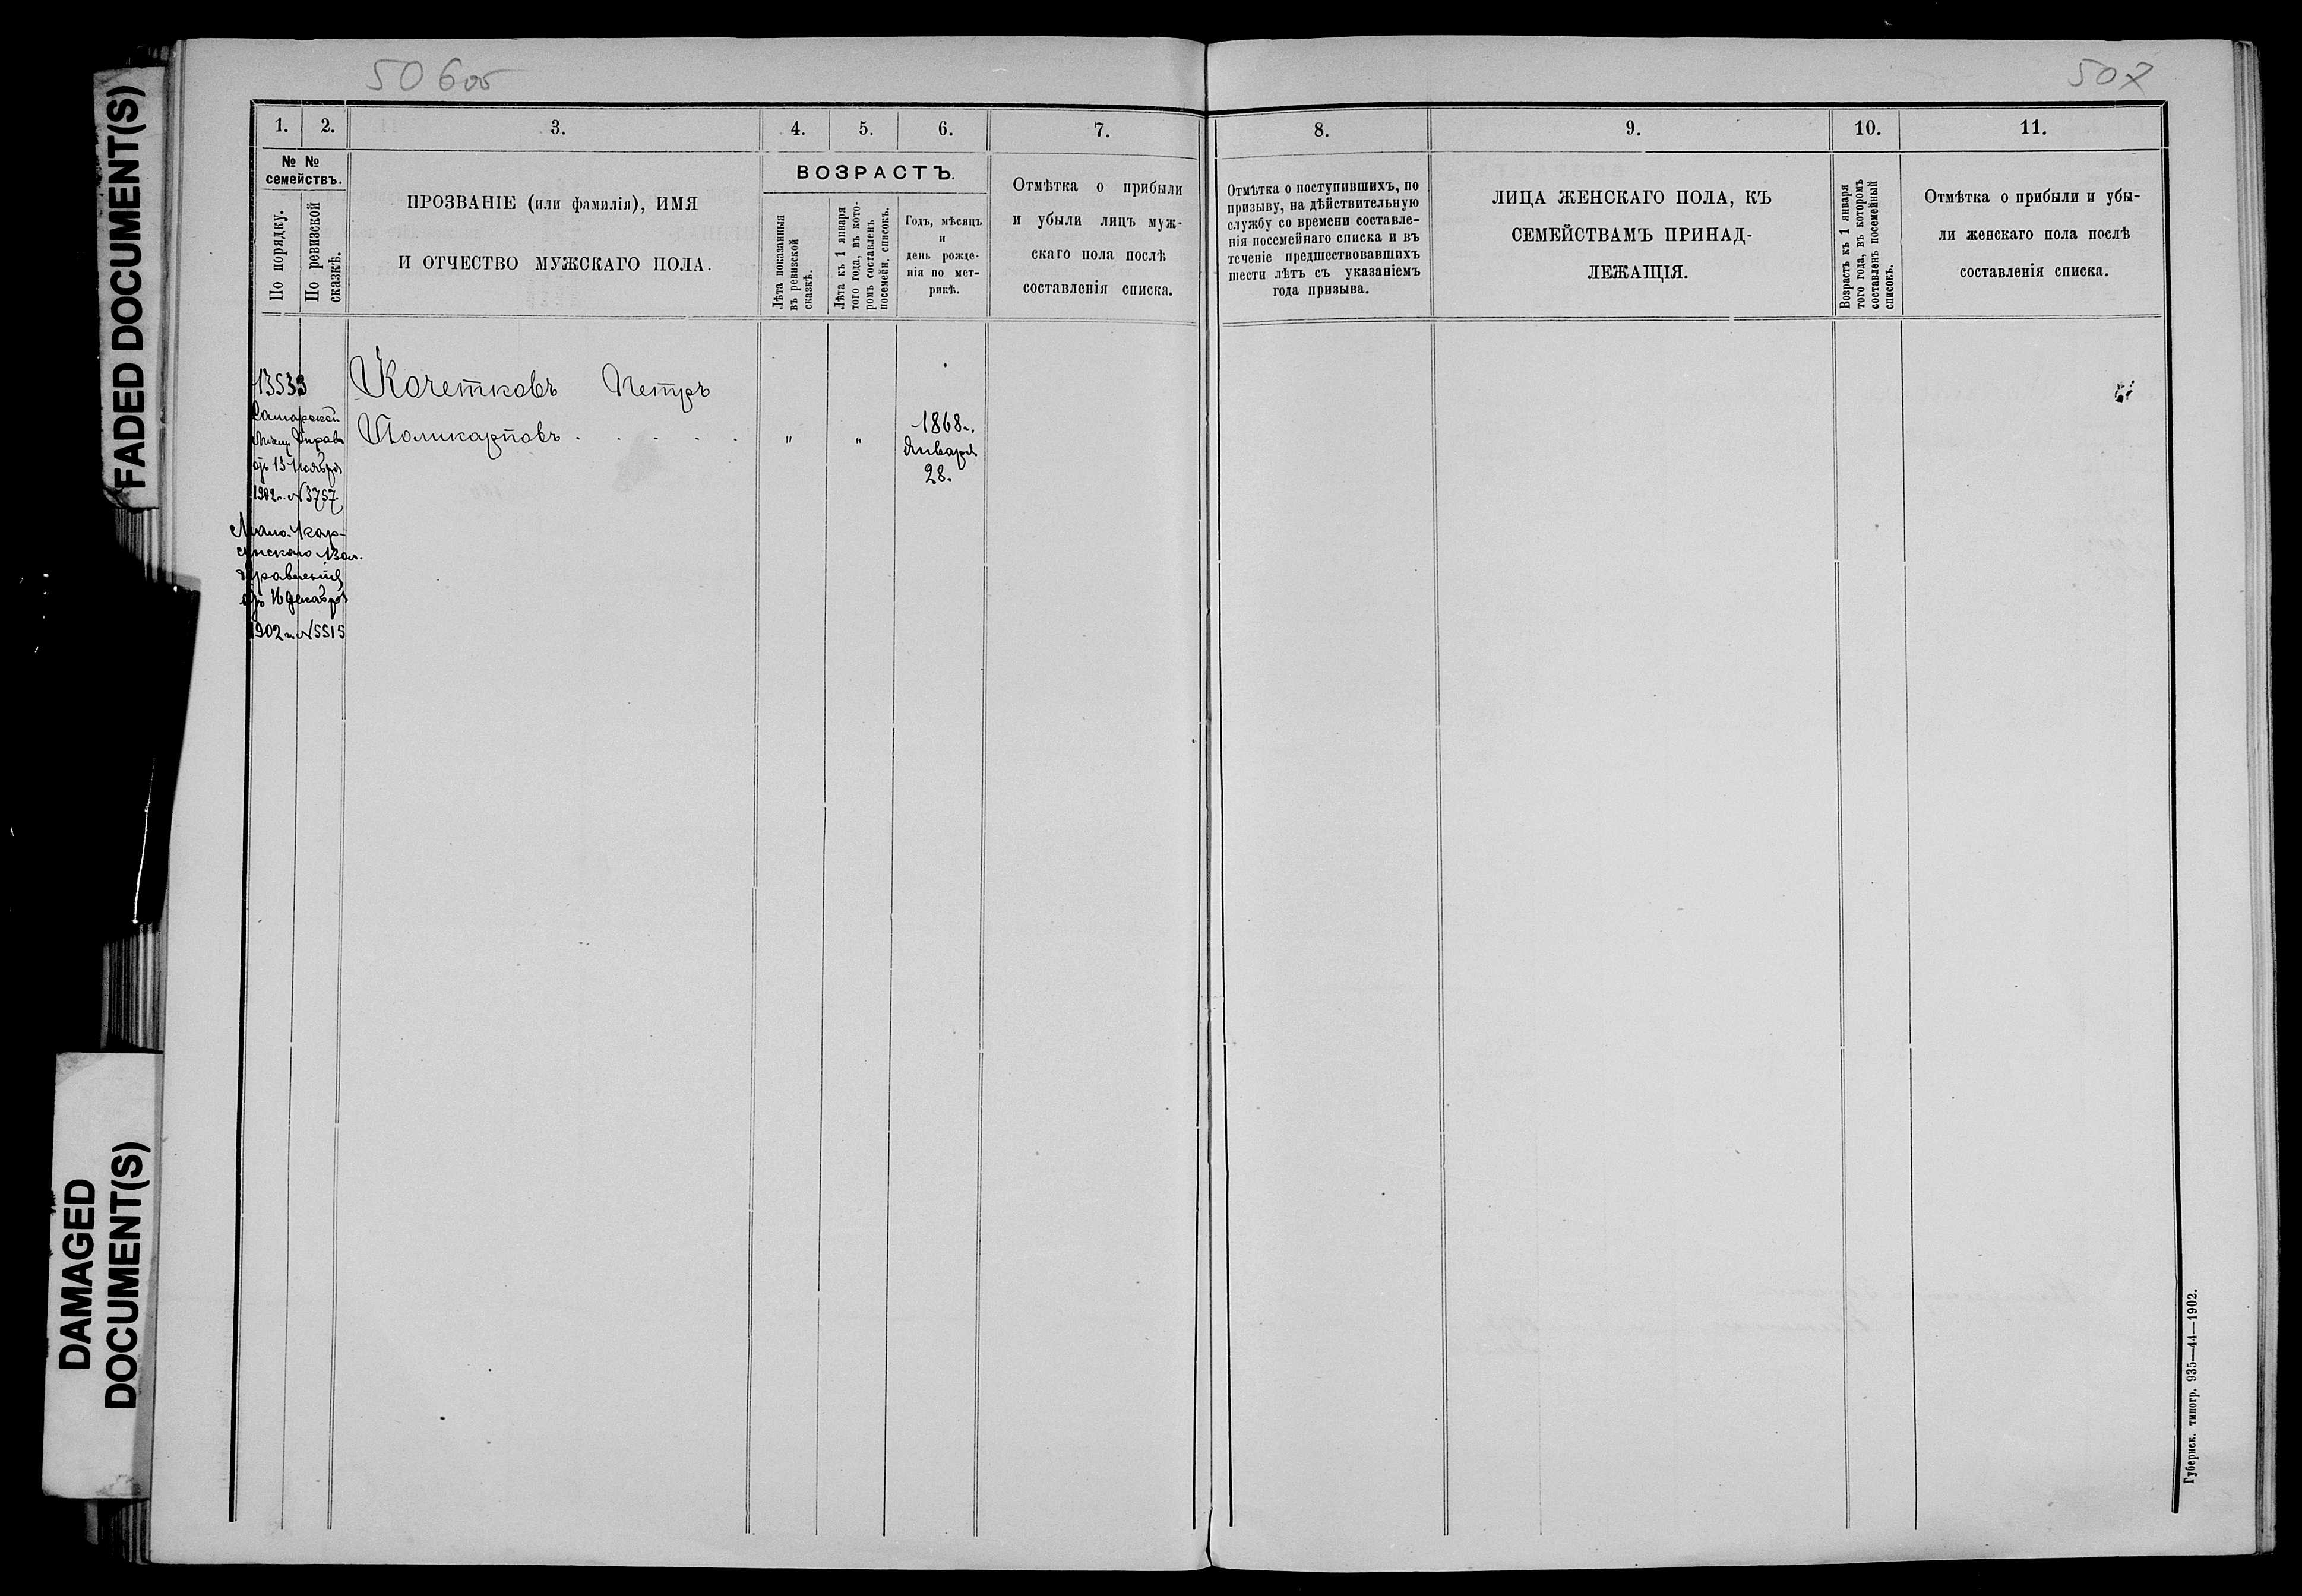 FADED DOCUMENT(S)
DAMAGED
DOCUMENT(S)
50 6об
507
1. 2. 3. 4. 5. 6. 7.
№ №
семействъ.
По порядку.
По ревизской
сказкѣ.
ПРОЗВАНІЕ (или фамилія), ИМЯ
И ОТЧЕСТВО МУЖСКАГО ПОЛА.
ВОЗРАСТЪ.
Лѣта показанныя
въ ревизской
сказкѣ.
Лѣта къ 1 января
того года, въ кото-
ромъ составленъ
посемейн. списокъ.
Годъ, мѣсяцъ
и
день рожде-
нія по мет-
рикѣ.
Отмѣтка о прибыли
и убыли лицъ муж-
скаго пола послѣ
составленія списка.
8. 9. 10. 11.
Отмѣтка о поступившихъ, по
призыву, на дѣйствительную
службу со времени составле-
нія посемейнаго списка и въ
теченіе предшествовавшихъ
шести лѣтъ съ указаніемъ
года призыва.
ЛИЦА ЖЕНСКАГО ПОЛА, КЪ
СЕМЕЙСТВАМЪ ПРИНАД-
ЛЕЖАЩІЯ.
Возрастъ къ 1 января
того года, въ которомъ
составленъ посемейный
списокъ.
Отмѣтка о прибыли и убы-
ли женскаго пола послѣ
составленія списка.
13533
Кочетковъ Петръ
Поликарповъ . . . . . " " 1868г.
Января
28.
Самарской
Управ
отъ 13 Ноября
1902г. № 3757.
Мало-
Вол.
Правленія
отъ 16 Декабря
1902г. № 5515
Губернск. типогр. 935—44—1902.